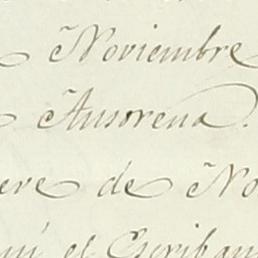 Noviembre
Ansorena.
ere de No
el Escriban